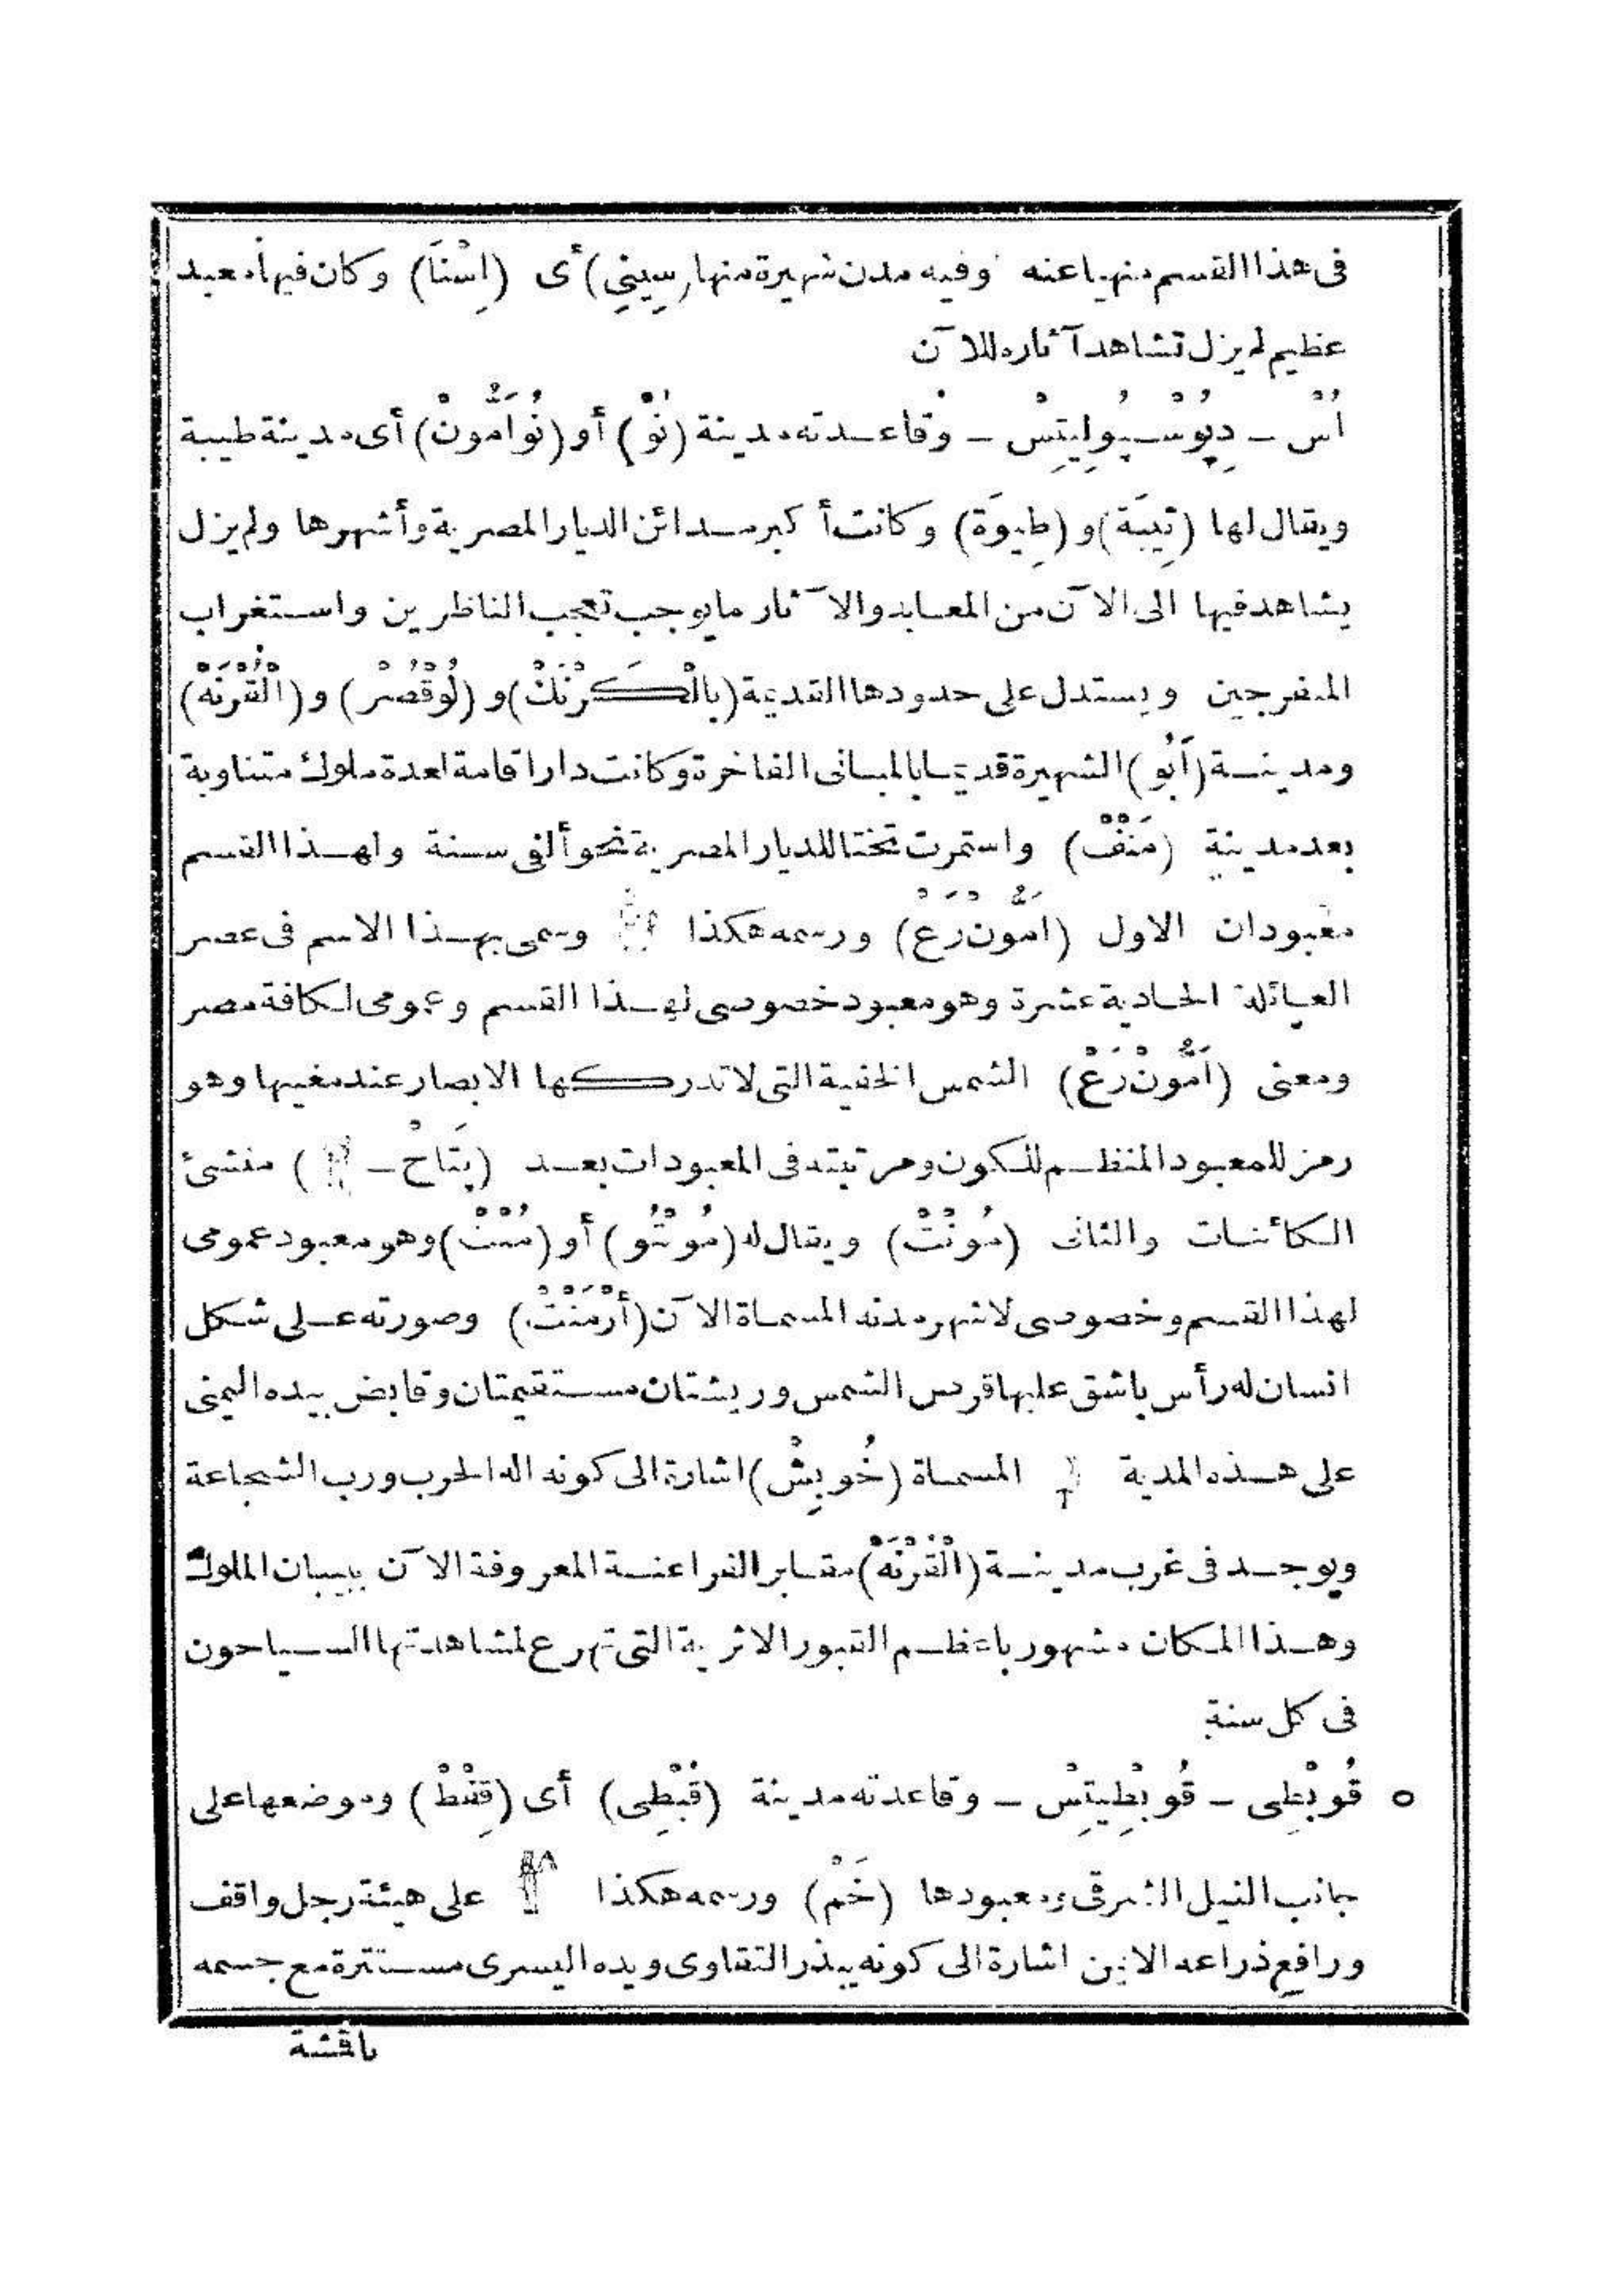 فى هذا القسم منهيا عنه وفيه مدن شهيرة منها (سِينِي) أى (اِسْنَا) وكان فيها معبد
عظيم لم يزل تشاهد آثاره للآن
اُسْ ـ دِيُوْسـپُولِيتِسْ ـ وقاعدته مدينة (نُوْ) أو (نُوْاَمُّونْ) أى مدينة طيبة
ويقال لها (تِيبَة) و (طِيوَة) وكانت أكبر مدائن الديار المصرية وأشهرها ولم يزل
يشاهد فيها الى الآن من المعابد والآثار ما يوجب تعجب الناظرين واستغراب
المتفرجين ويستدل على حدودها القديمة (بالْكَرْنَكْ) و (لُوقْصُرْ) و (الْقُرْنَهْ)
ومدينة (اَبُو) الشهيرة قديما بالمبانى الفاخرة وكانت دار اقامة لعدة ملوك متناوبة
بعد مدينة (مَنْفْ) واستمرت تختا للديار المصرية نحو ألفى سنة ولهذا القسم
معبودان الاول (اَمُّونْ رَعْ) ورسمه هكذا وسمى بهذا الاسم فى عصر
العائلة الحادية عشرة وهو معبود خصوصى لهذا القسم وعمومى لكافة مصر
ومعنى (اَمُّونْ رَعْ) الشمس الخفية التى لا تدركها الابصار عند مغيبها وهو
رمز للمعبود المنظم للكون ومرتبته فى المعبودات بعد (پتَاحْ ـ ) منشئ
الكائنات والثانى (مُونْتْ) ويقال له (مُونْتُو) أو (مُنْتْ) وهو معبود عمومى
لهذا القسم وخصوصى لاشهر مدنه المسماة الآن (أَرْمَنْتْ) وصورته على شكل
انسان له رأس باشق عليها قرص الشمس وريشتان مستقيمتان وقابض بيده اليمنى
على هذه المدية المسماة (خُوپِشْ) اشارة الى كونه اله الحرب ورب الشجاعة
ويوجد فى غرب مدينة (الْقُرْنَهْ) مقابر الفراعنة المعروفة الآن ببيبان الملوك
وهذا المكان مشهور باعظم القبور الاثرية التى تهرع لمشاهدتها السياحون
فى كل سنة
٥ قُوبْطِى ـ قُوبْطِيتِسْ ـ وقاعدته مدينة (قُبْطِى) أى (قِفْطْ) وموضعها على
جانب النيل الشرقى ومعبودها (خَمْ) ورسمه هكذا على هيئة رجل واقف
ورافع ذراعه الايمن اشارة الى كونه يبذر التقاوى ويده اليسرى مستترة مع جسمه